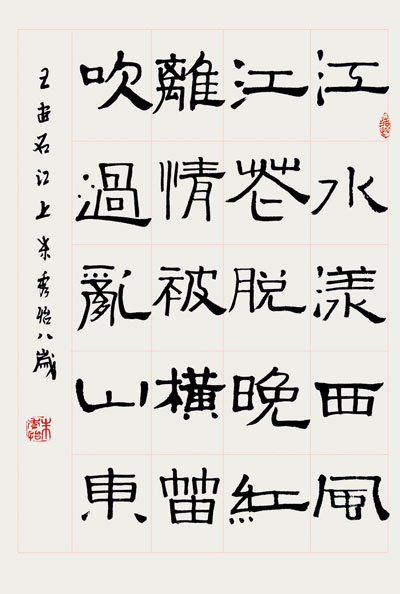 江水漾西風
江花脱晚紅
離情被橫笛
吹過亂山東
王安石江上朱秀怡八歲